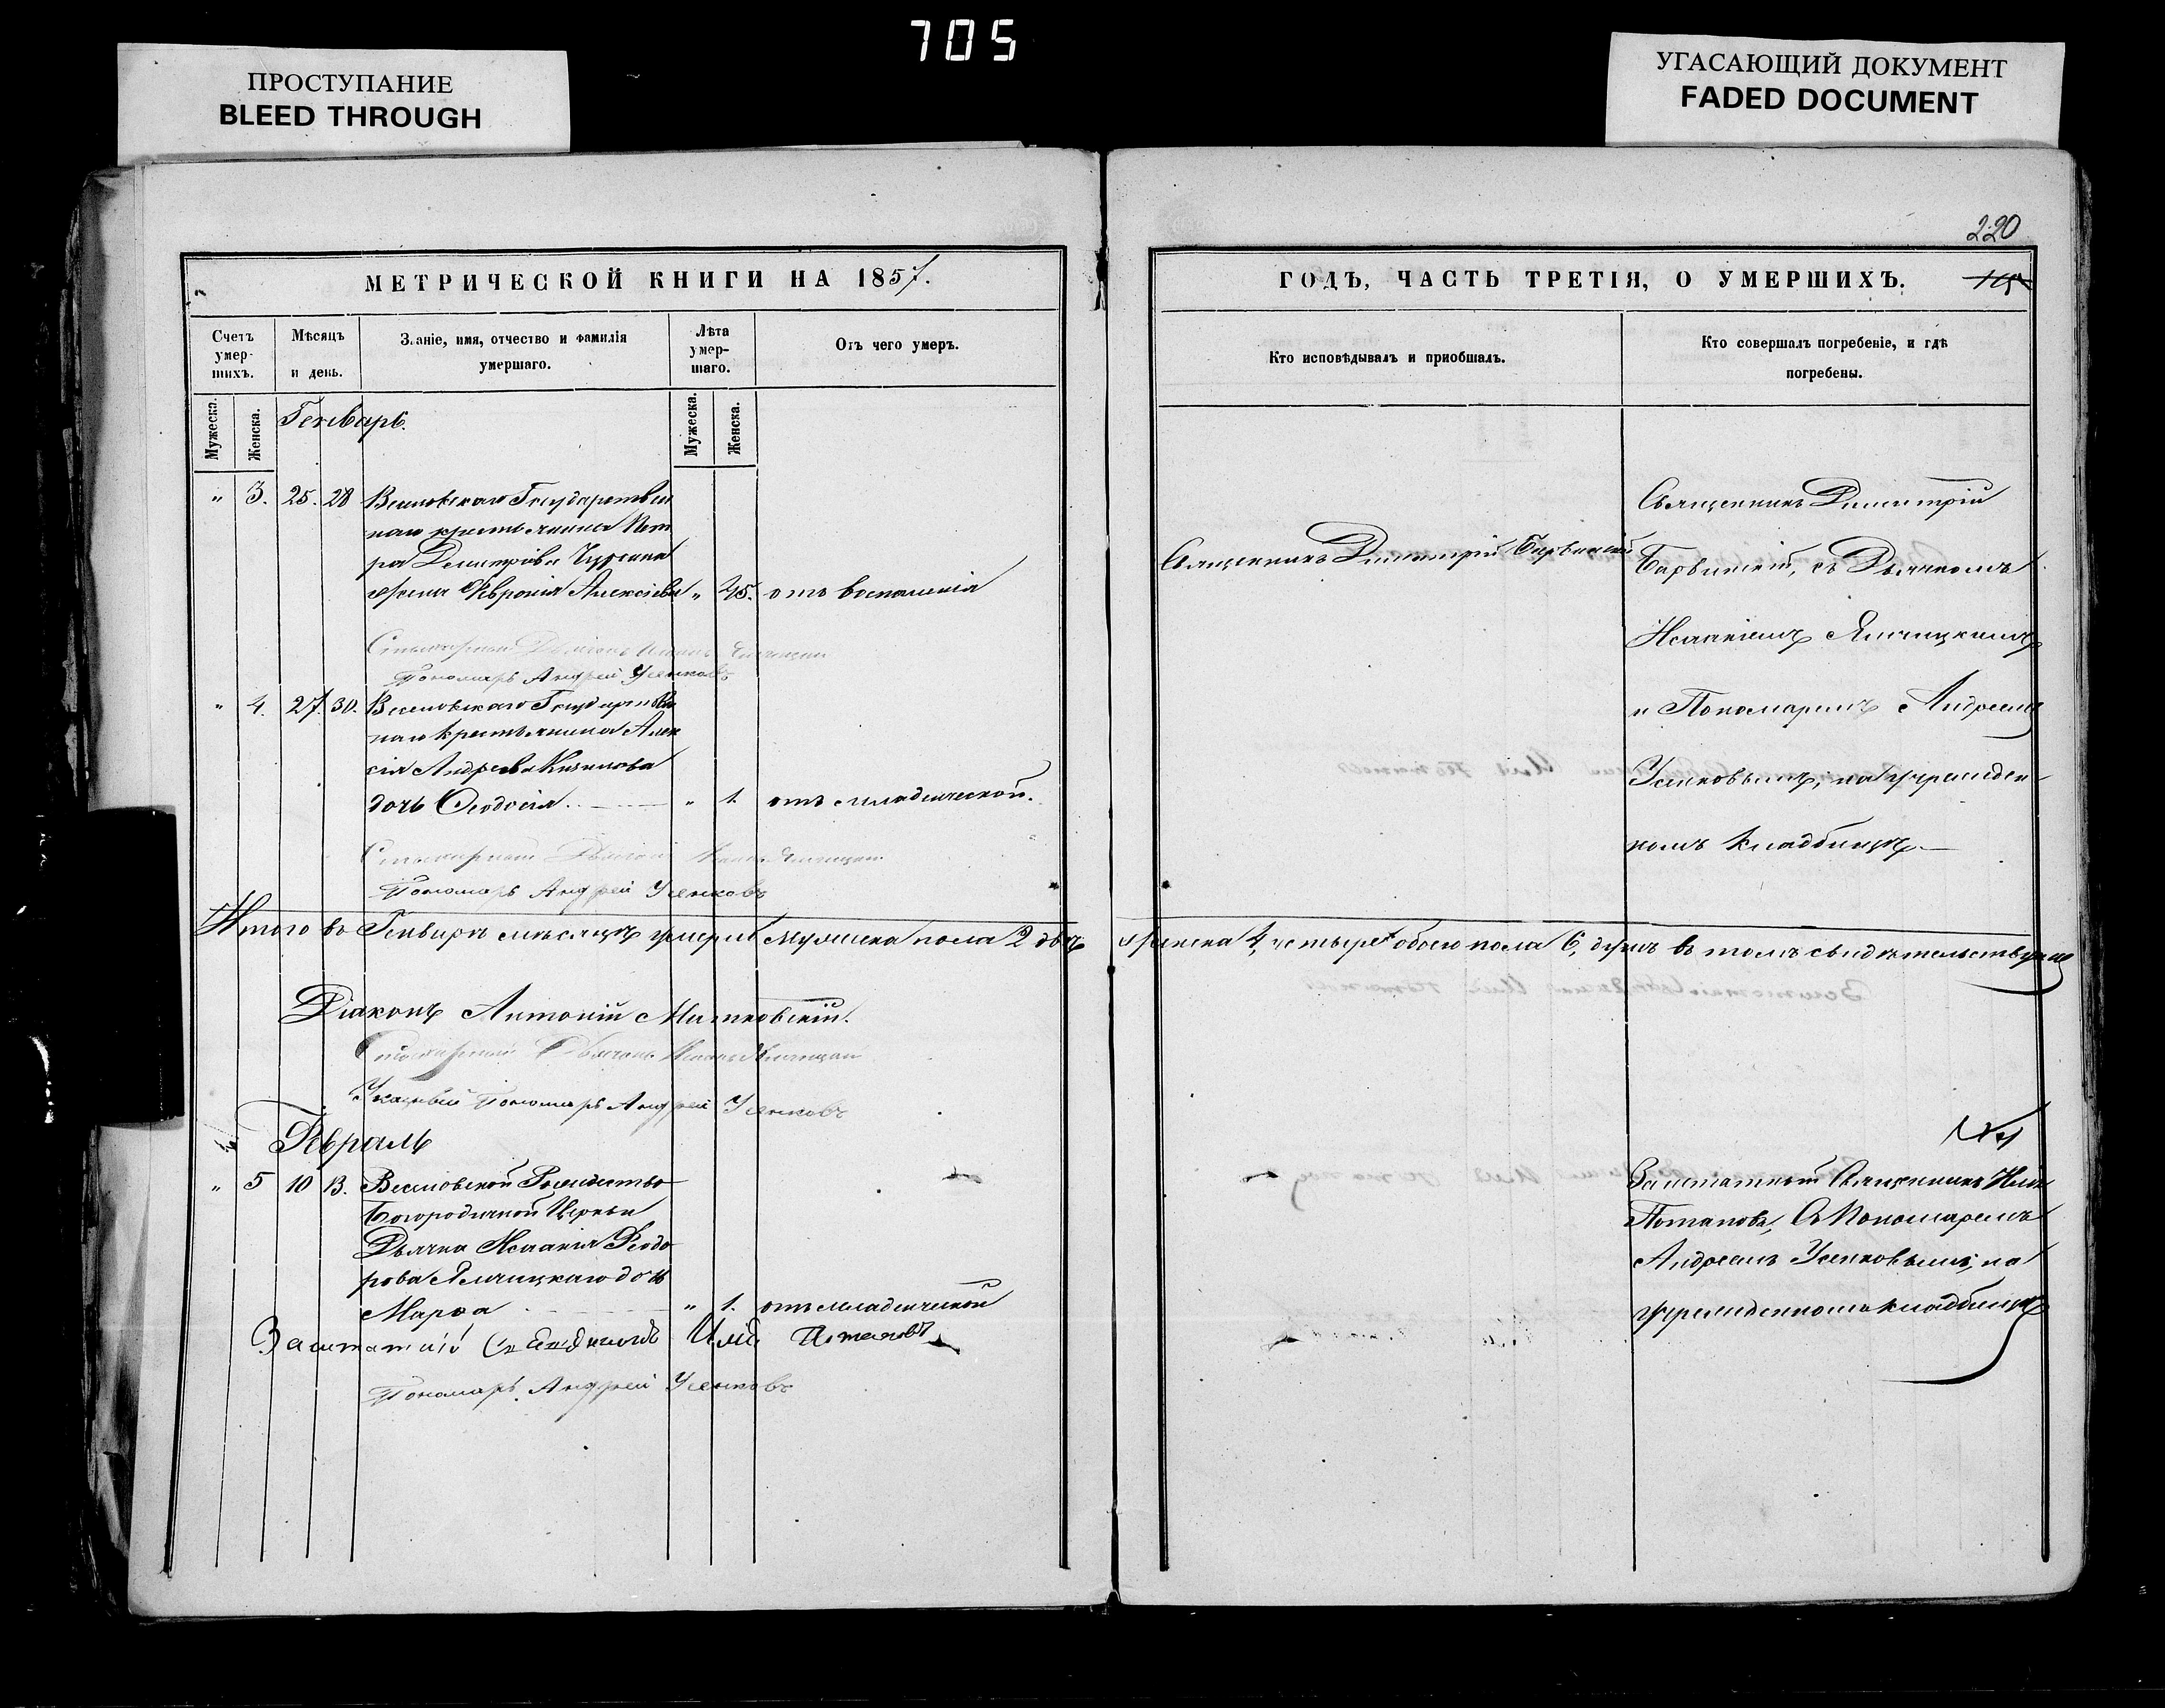 705
ПРОСТУПАНИЕ
BLEED THROUGH
УГАСАЮЩИЙ ДОКУМЕНТ
FADED DOCUMENT
МЕТРИЧЕСКОЙ КНИГИ НА 1857.
Счетъ умер-шихъ.
Мѣсяцъ и день.
Званіе, имя, отчество и фамилія умершаго.
Лѣта умер-шаго.
Отъ чего умеръ.
Мужеска.
Женска.
Мужеска.
Женска.
Генварь.
" 3. 25. 28 Государствен
наго крестьянина Пет
ра Димитріева
жена Февронія Алексіева " 45. отъ воспаленія
Пономарь Андрей Усенковъ
" 4. 27. 30. Государствен
наго крестьянина Алек
сія Андреева
дочь Ѳеодосія. " 1. отъ младенческой.
Пономарь Андрей Усенковъ
Итого въ Генварѣ мѣсяцѣ умерло мужеска пола 2 двѣ
Діаконъ Антоній
Указный Пономарь Андрей Усенковъ
Февраль
" 5 10 13. Рождество
Богородичной Церкви
Дьячка Исаакія Ѳеодо
рова дочь
Марѳа " 1. отъ младенческой
Заштатній Священникъ Илія Потаповъ
Пономарь Андрей Усенковъ
220
ГОДЪ, ЧАСТЬ ТРЕТІЯ, О УМЕРШИХЪ.
Кто исповѣдывалъ и пріобщалъ.
Кто совершалъ погребеніе, и гдѣ погребены.
Священникъ Димитрій
Священникъ Димитрій Барвинскій
Барвинскій, съ Дьячкомъ
Исаакіемъ
и Пономаремъ Андреемъ
Усенковымъ, на учрежден-
номъ кладбищѣ.
женска 4, четыре обоего пола 6, душъ въ томъ свидѣтельствуемъ
Заштатный Священникъ Илія
Потаповъ, съ Пономаремъ
Андреемъ Усенковымъ, на
учрежденномъ кладбищѣ